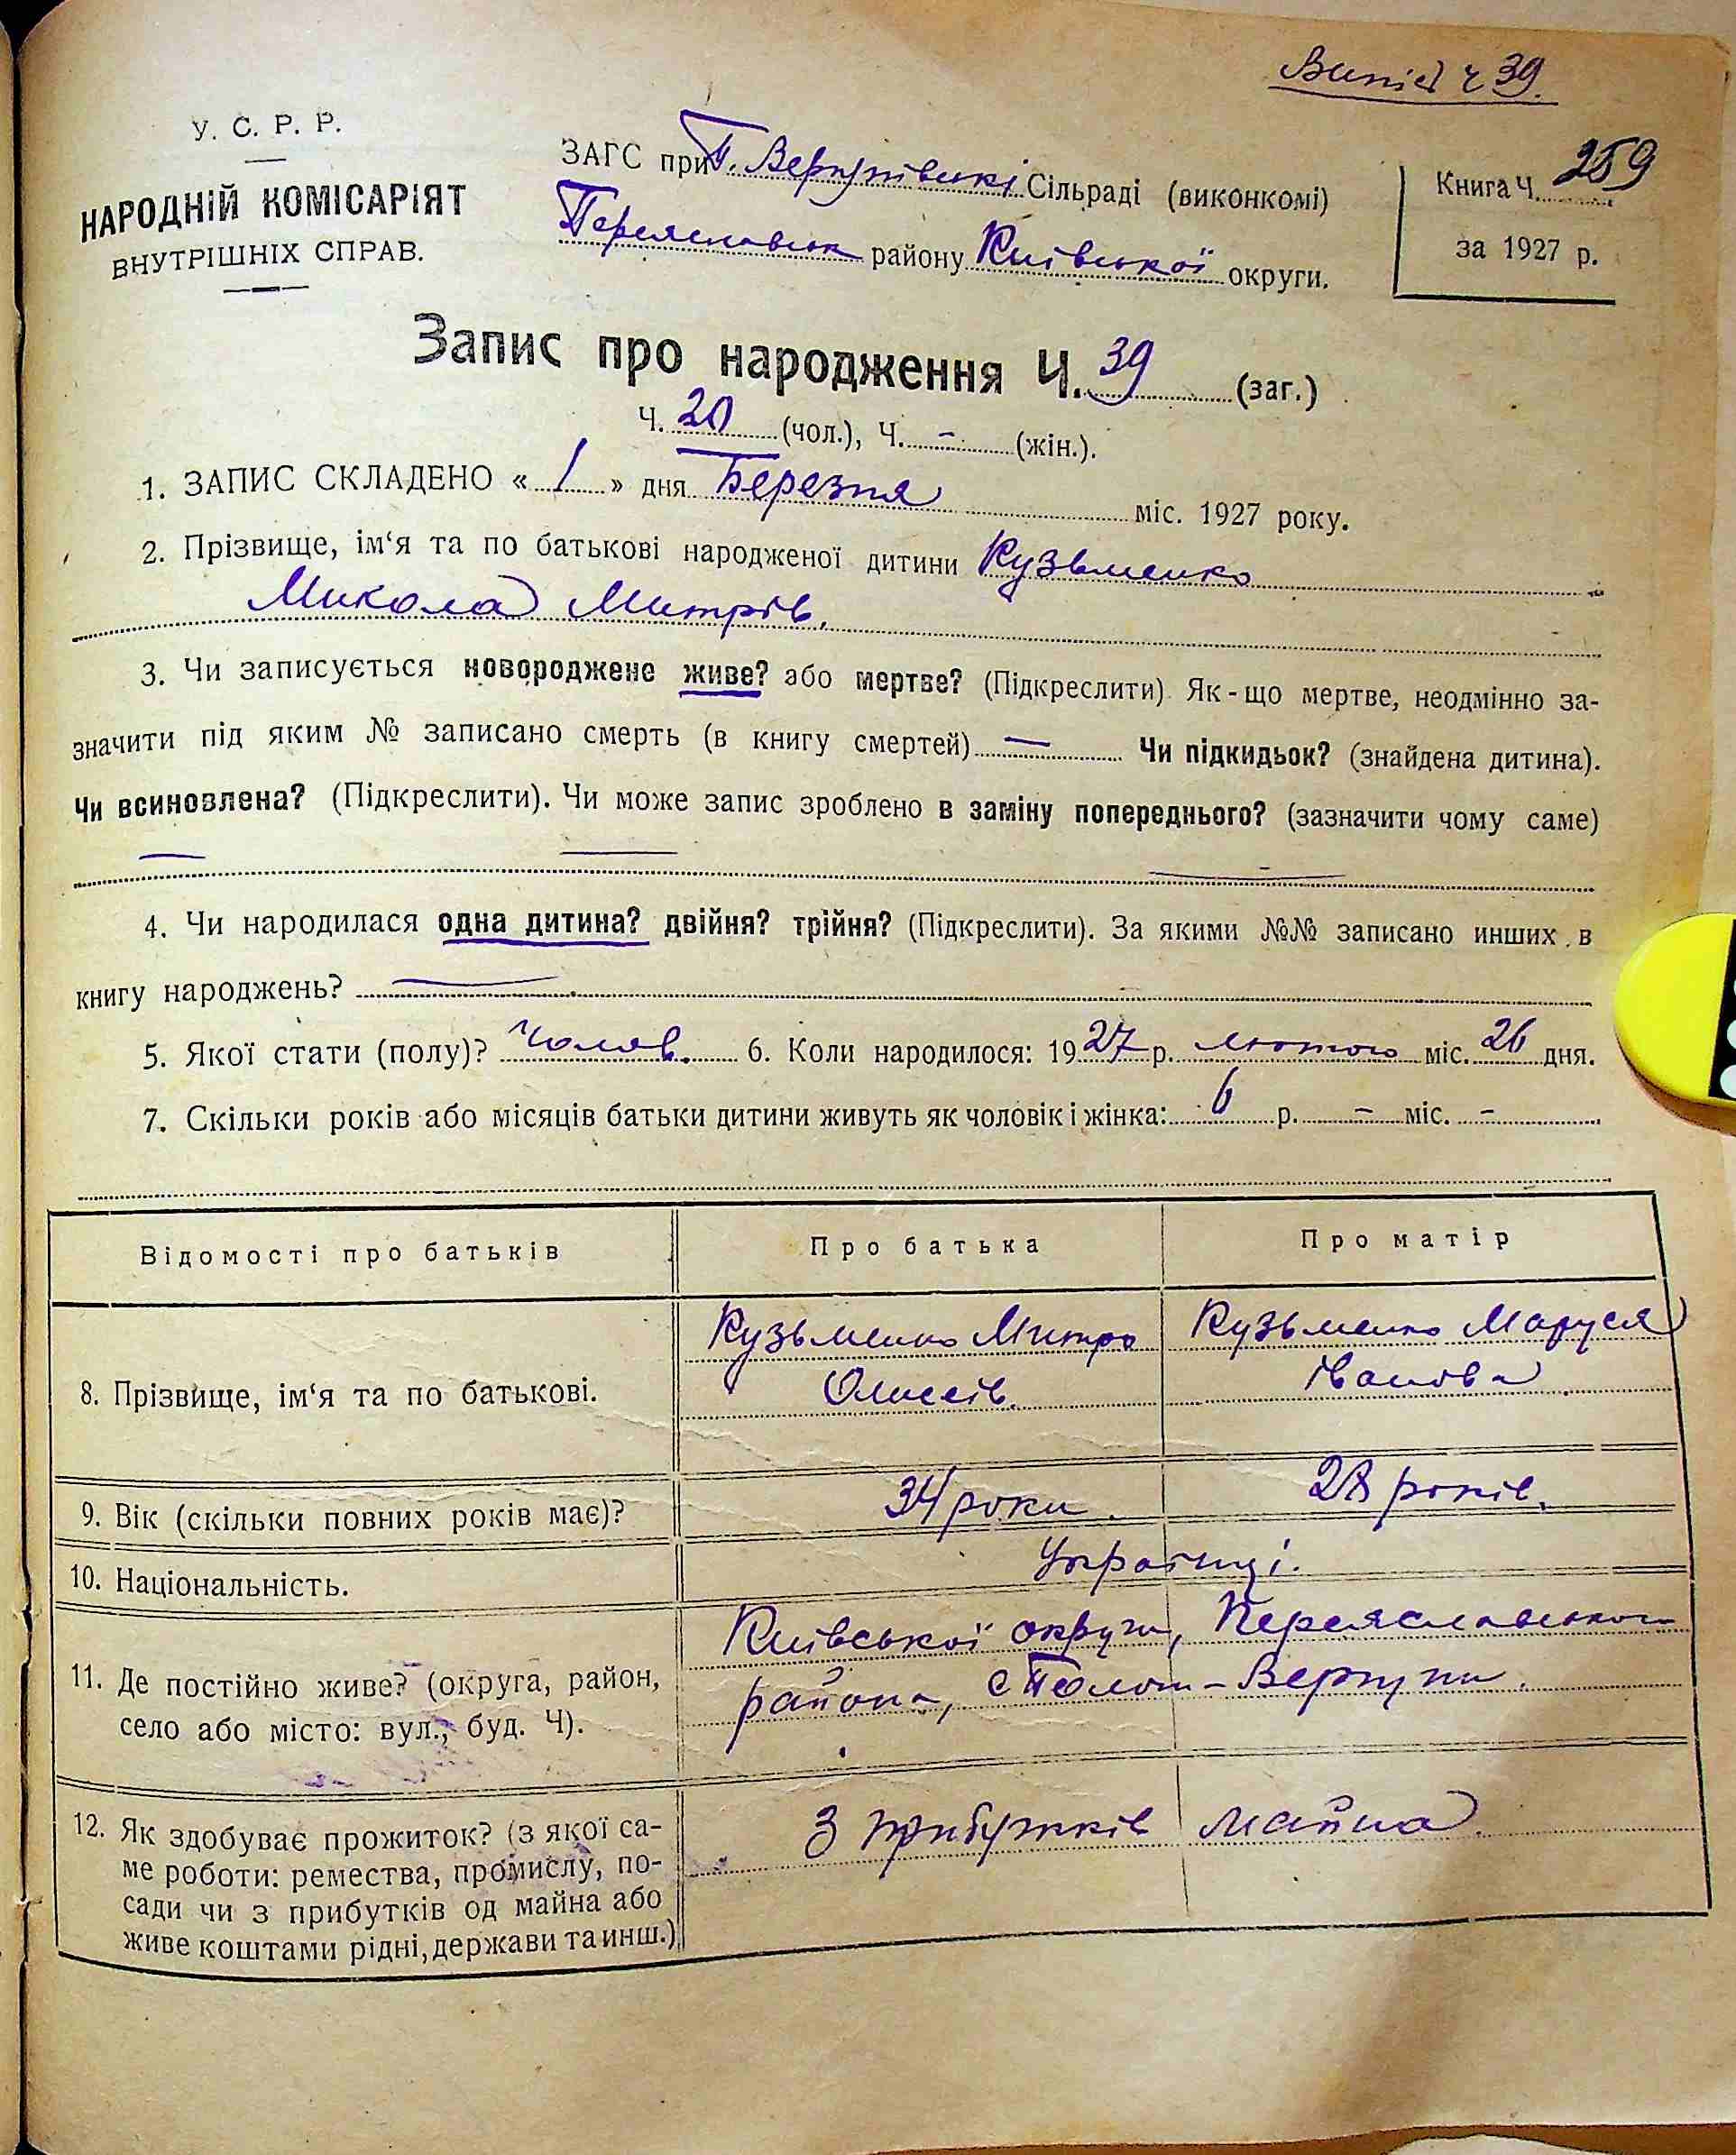 Випис ч 39.
У. С. Р. Р.
НАРОДНІЙ КОМІСАРІЯТ
ВНУТРІШНІХ СПРАВ.
ЗАГС при П. Вергунівські Сільраді (виконкомі)
Переяславськ району Київської округи.
Книга Ч. 259
за 1927 р.
Запис про народження Ч. 39 (заг.)
Ч. 20 (чол.), Ч. - (жін.).
1. ЗАПИС СКЛАДЕНО « 1 » дня Березня міс. 1927 року.
2. Прізвище, ім‘я та по батькові народженої дитини Кузьменко
Микола Митрів.
3. Чи записується новороджене живе? або мертве? (Підкреслити). Як-що мертве, неодмінно за-
значити під яким № записано смерть (в книгу смертей) — Чи підкидьок? (знайдена дитина).
Чи всиновлена? (Підкреслити). Чи може запис зроблено в заміну попереднього? (зазначити чому саме)
4. Чи народилася одна дитина? двійня? трійня? (Підкреслити). За якими №№ записано инших в
книгу народжень? —
5. Якої стати (полу)? Чолов. 6. Коли народилося: 1927 р. лютого міс. 26 дня.
7. Скільки років або місяців батьки дитини живуть як чоловік і жінка: 6 р. - міс. -
Відомості про батьків Про батька Про матір
8. Прізвище, ім‘я та по батькові.
Кузьменко Митро
Олисеїв.
Кузьменко Маруся
Іванова
9. Вік (скільки повних років має)? 34 роки. 28 років.
10. Національність. Українці.
11. Де постійно живе? (округа, район,
село або місто: вул., буд. Ч).
Київської округи, Переяславського
района, с Полог-Вергуни.
12. Як здобуває прожиток? (з якої са-
ме роботи: ремества, промислу, по-
сади чи з прибутків од майна або
живе коштами рідні, держави та инш.)
З прибутків майна